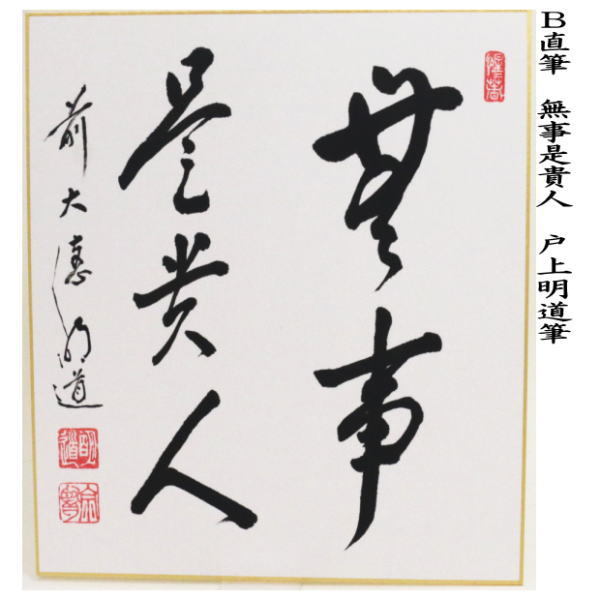 B直筆　無事是貴人　戸上明道筆
無事
是貴人
前大徳明道